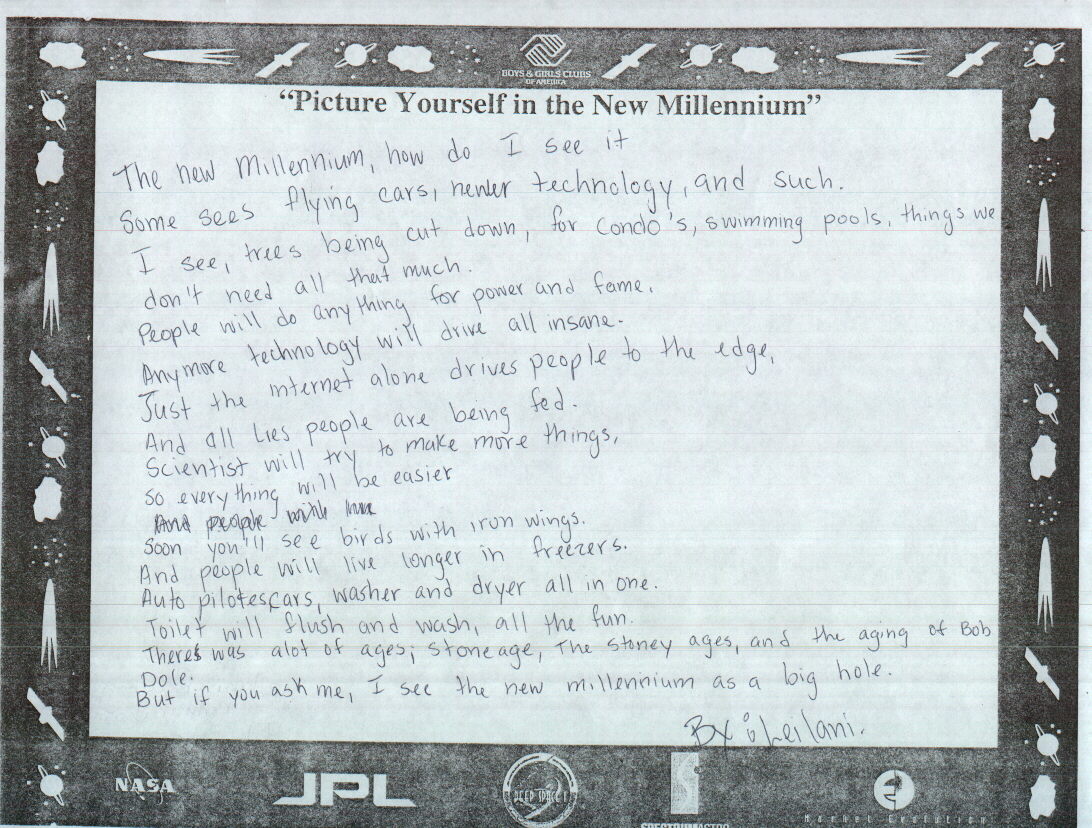 BOYS & GIRLS CLUBS
OF AMERICA
"Picture Yourself in the New Millennium"
The new Millennium, how do I see it
Some sees flying cars, newer technology, and such.
I see, trees being cut down, for Condo's, swimming pools, things we
don't need all that much.
People will do anything for power and fame.
Anymore technology will drive all insane.
Just the internet alone drives people to the edge,
And all Lies people are being fed.
Scientist will try to make more things,
So everything will be easier
And people with
Soon you'll see birds with iron wings.
And people will live longer in freezers.
Auto pilotescars, washer and dryer all in one.
Toilet will flush and wash, all the fun.
Theres was alot of ages; Stoneage, The Stoney ages, and the aging of Bob
Dole.
But if you ask me, I see the new millennium as a big hole.
By: Leilani.
NASA
JPL
DEEP SPACE 1
SPECTRUMASTRO
Market Evolution